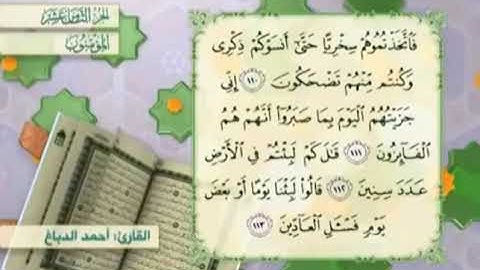 الجزء الثامن عشر
المؤمنون
فَٱتَّخَذْتُمُوهُمْ سِخْرِيًّا حَتَّىٰٓ أَنسَوْكُمْ ذِكْرِى
وَكُنتُم مِّنْهُمْ تَضْحَكُونَ ١١٠ إِنِّى
جَزَيْتُهُمُ ٱلْيَوْمَ بِمَا صَبَرُوٓا۟ أَنَّهُمْ هُمُ
ٱلْفَآئِزُونَ ١١١ قَٰلَ كَمْ لَبِثْتُمْ فِى ٱلْأَرْضِ
عَدَدَ سِنِينَ ١١٢ قَالُوا۟ لَبِثْنَا يَوْمًا أَوْ بَعْضَ
يَوْمٍ فَسْـَٔلِ ٱلْعَآدِّينَ ١١٣
القارئ: أحمد الدباغ